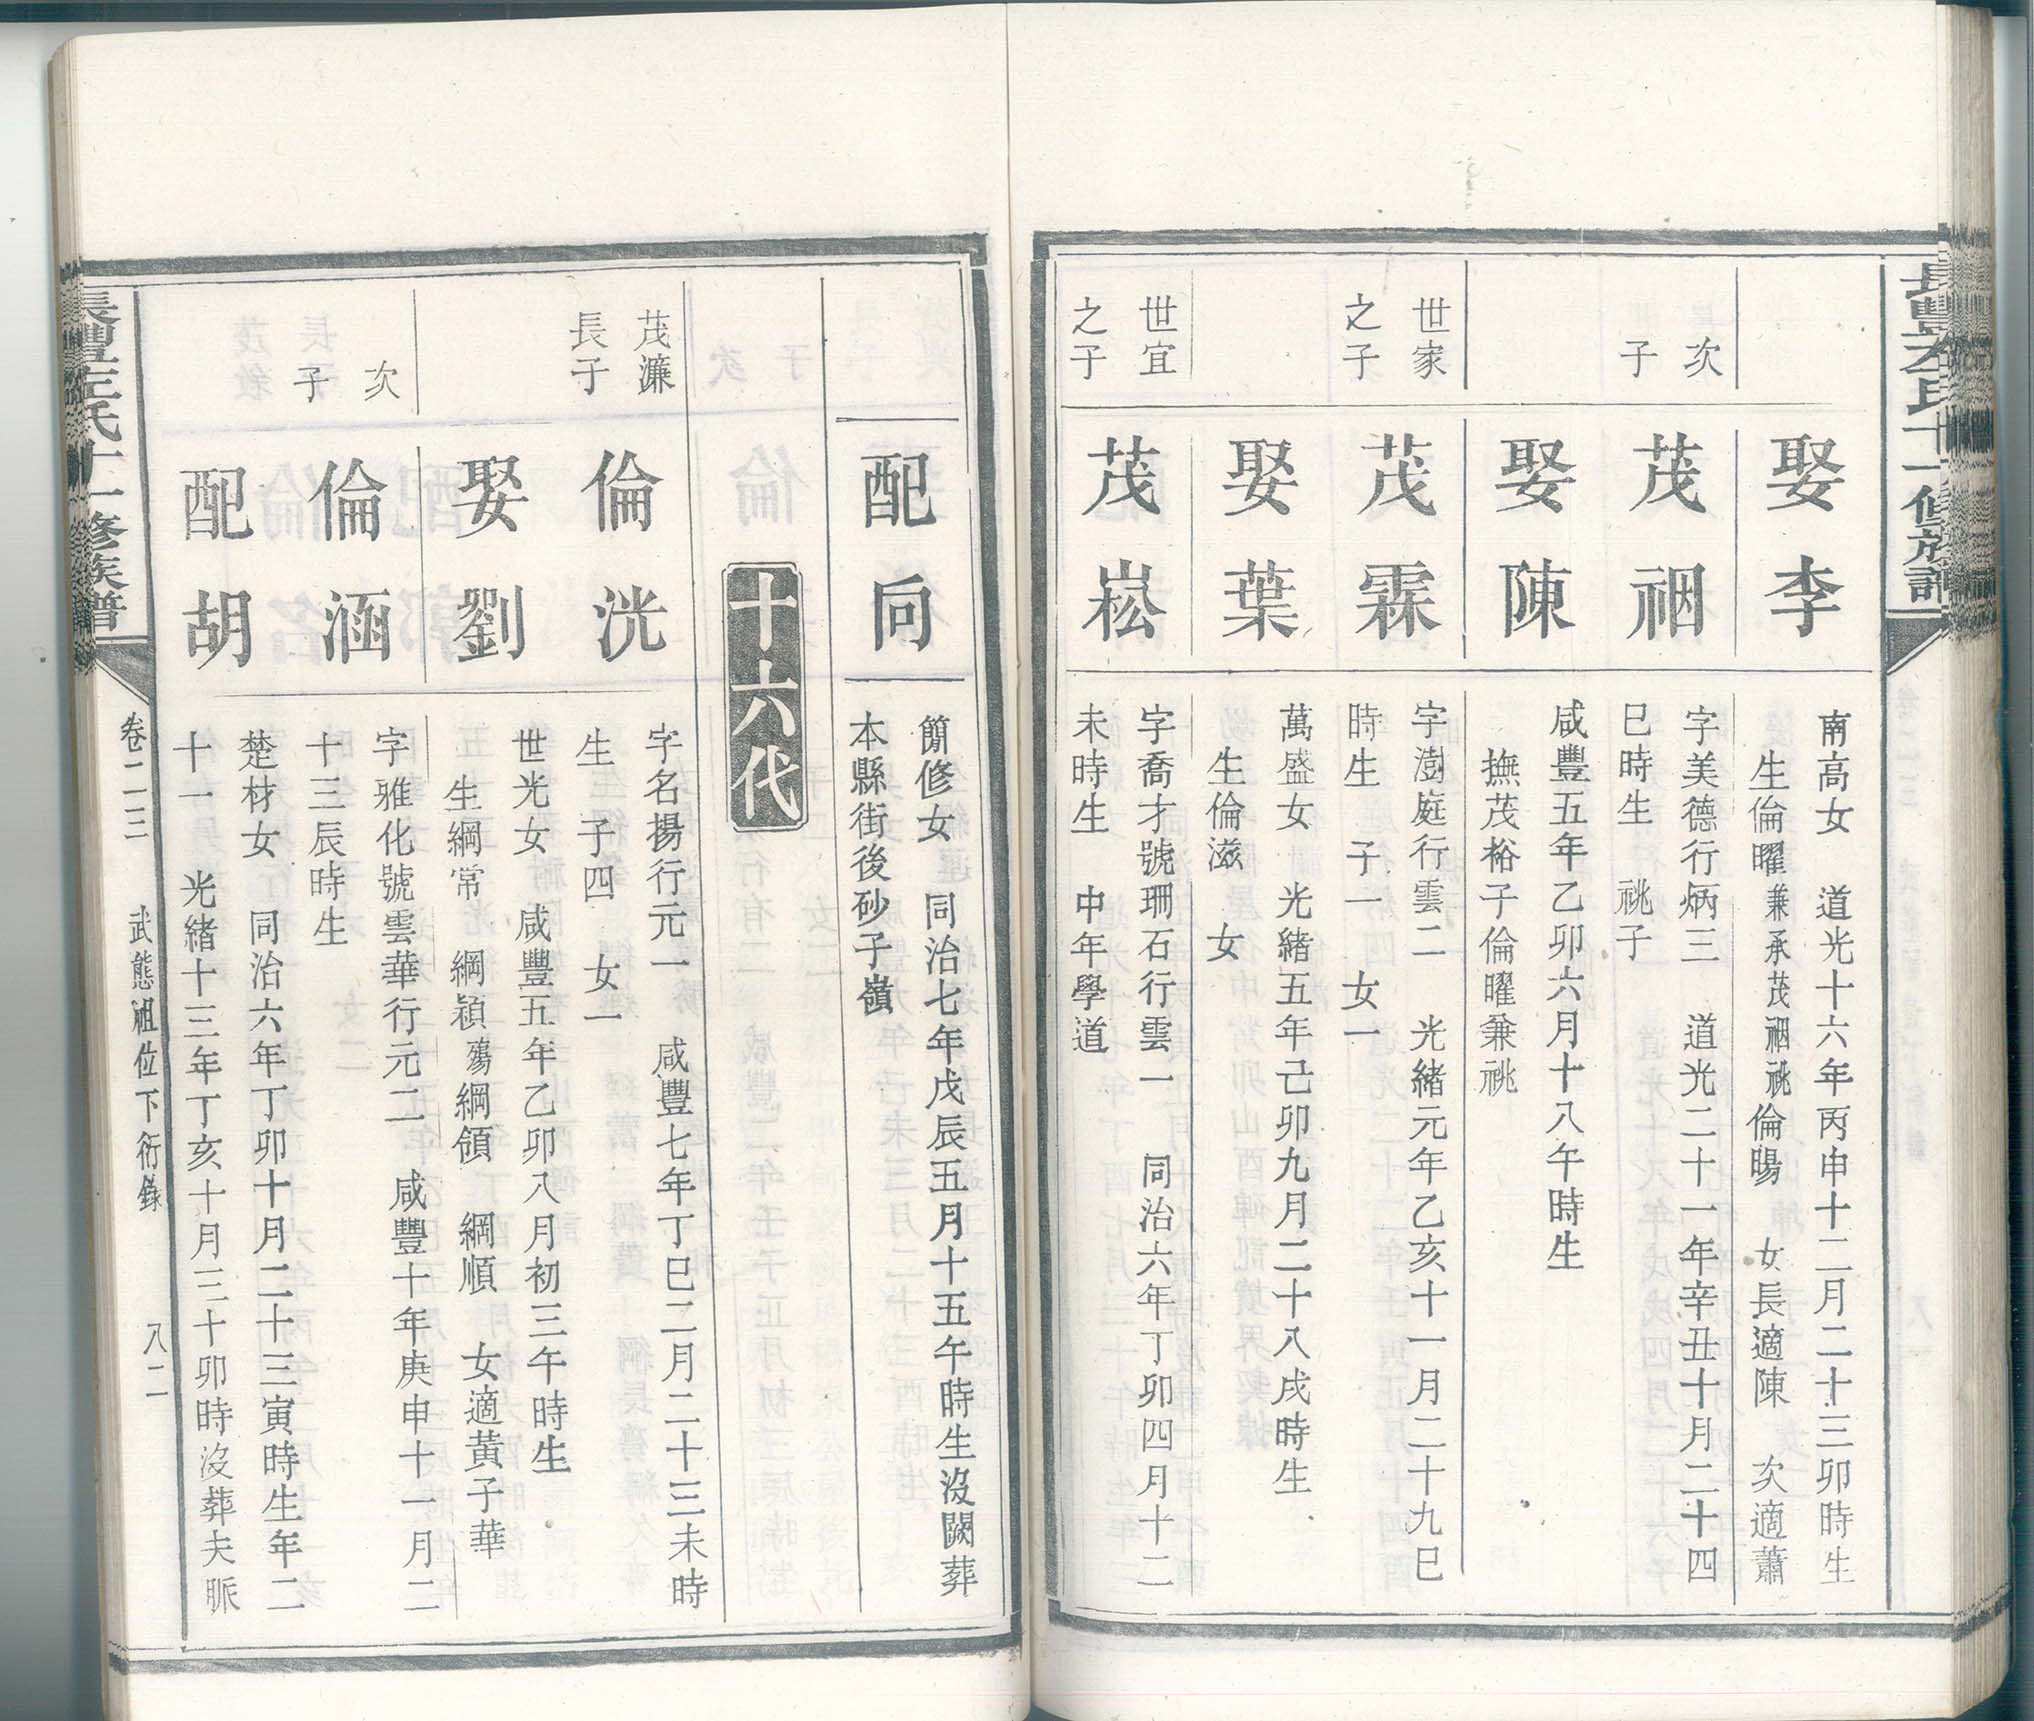 長豐左氏十一修族譜
娶李
南高女　道光十六年丙申十二月二十三卯時生
生倫曜兼承茂祵祧倫暘　女長適陳　次適蕭
次子
茂祵
字美德行炳三　道光二十一年辛丑十月二十四
巳時生　祧子
娶陳
咸豐五年乙卯六月十八午時生
撫茂裕子倫曜兼祧
世家之子
茂霖
字澍庭行雲二　光緒元年乙亥十一月二十九巳
時生　子一　女一
娶葉
萬盛女　光緒五年己卯九月二十八戌時生
生倫滋　女
世宜之子
茂崧
字喬才號珊石行雲一　同治六年丁卯四月十二
未時生　中年學道
配向
簡修女　同治七年戊辰五月十五午時生沒闕葬
本縣街後砂子嶺
十六代
茂濂長子
倫洸
字名揚行元一　咸豐七年丁巳二月二十三未時
生　子四　女一
娶劉
世光女　咸豐五年乙卯八月初三午時生
生綱常　綱潁殤綱領　綱順　女適黃子華
次子
倫涵
字雅化號雲華行元二　咸豐十年庚申十一月二
十三辰時生
配胡
楚材女　同治六年丁卯十月二十三寅時生年二
十一　光緒十三年丁亥十月三十卯時沒葬夫脈
長豐左氏十一修族譜
卷二三　武態祖位下衍錄　八二